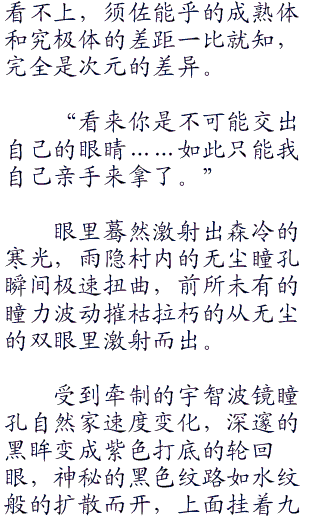 看不上，须佐能乎的成熟体
和究极体的差距一比就知，
完全是次元的差异。
“看来你是不可能交出
自己的眼睛……如此只能我
自己亲手来拿了。”
眼里蓦然激射出森冷的
寒光，雨隐村内的无尘瞳孔
瞬间极速扭曲，前所未有的
瞳力波动摧枯拉朽的从无尘
的双眼里激射而出。
受到牵制的宇智波镜瞳
孔自然家速度变化，深邃的
黑眸变成紫色打底的轮回
眼，神秘的黑色纹路如水纹
般的扩散而开，上面挂着九